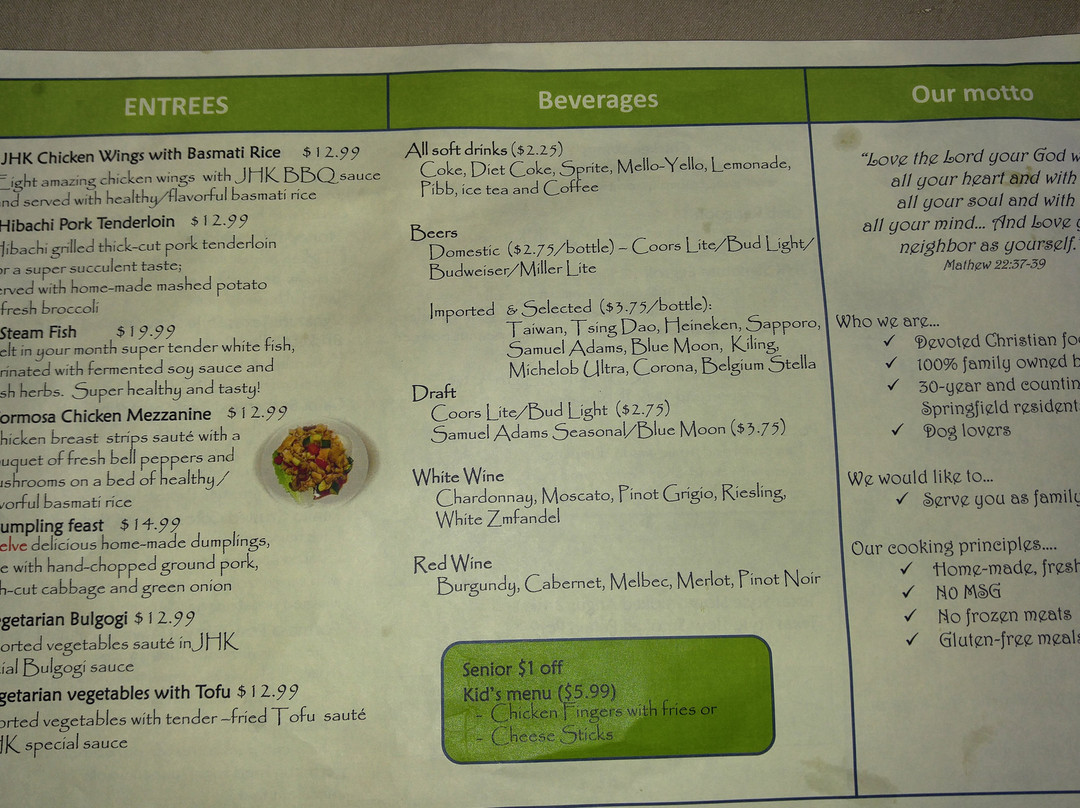 ENTREES
JHK Chicken Wings with Basmati Rice $12.99
Eight amazing chicken wings with JHK BBQ sauce
and served with healthy/flavorful basmati rice
Hibachi Pork Tenderloin $12.99
Hibachi grilled thick-cut pork tenderloin
a super succulent taste;
with home-made mashed potato
fresh broccoli
Steam Fish $19.99
in your month super tender white fish,
with fermented soy sauce and
herbs. Super healthy and tasty!
Chicken Mezzanine $12.99
breast strips sauté with a
of fresh bell peppers and
on a bed of healthy/
basmati rice
feast $14.99
delicious home-made dumplings,
with hand-chopped ground pork,
cabbage and green onion
Bulgogi $12.99
vegetables sauté in JHK
Bulgogi sauce
vegetables with Tofu $12.99
vegetables with tender -fried Tofu sauté
special sauce
Beverages
All soft drinks ($2.25)
Coke, Diet Coke, Sprite, Mello-Yello, Lemonade,
Pibb, ice tea and Coffee
Beers
Domestic ($2.75/bottle) – Coors Lite/Bud Light/
Budweiser/Miller Lite
Imported & Selected ($3.75/bottle):
Taiwan, Tsing Dao, Heineken, Sapporo,
Samuel Adams, Blue Moon, Kiling,
Michelob Ultra, Corona, Belgium Stella
Draft
Coors Lite/Bud Light ($2.75)
Samuel Adams Seasonal/Blue Moon ($3.75)
White Wine
Chardonnay, Moscato, Pinot Grigio, Riesling,
White Zmfandel
Red Wine
Burgundy, Cabernet, Melbec, Merlot, Pinot Noir
Senior $1 off
Kid's menu ($5.99)
- Chicken Fingers with fries or
- Cheese Sticks
Our motto
"Love the Lord your God
all your heart and with
all your soul and with
all your mind... And Love
neighbor as yourself.
Mathew 22:37-39
Who we are...
✓ Devoted Christian
✓ 100% family owned
✓ 30-year and
Springfield resident
✓ Dog lovers
We would like to...
✓ Serve you as family
Our cooking principles....
✓ Home-made, fresh
✓ NO MSG
✓ No frozen meats
✓ Gluten-free meals